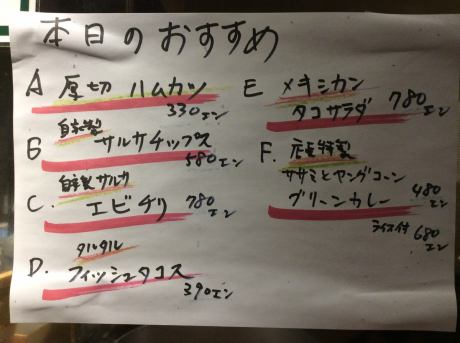 本日のおすすめ
A 厚切 ハムカツ
330エン
自家製
B サルサチップス
580エン
自家製サルサ
C. エビチリ 780エン
タルタル
D. フィッシュタコス
390エン
E メキシカン
タコサラダ 780エン
F. 店長特製
ササミとヤングコーン
グリーンカレー 480エン
ライス付 680エン